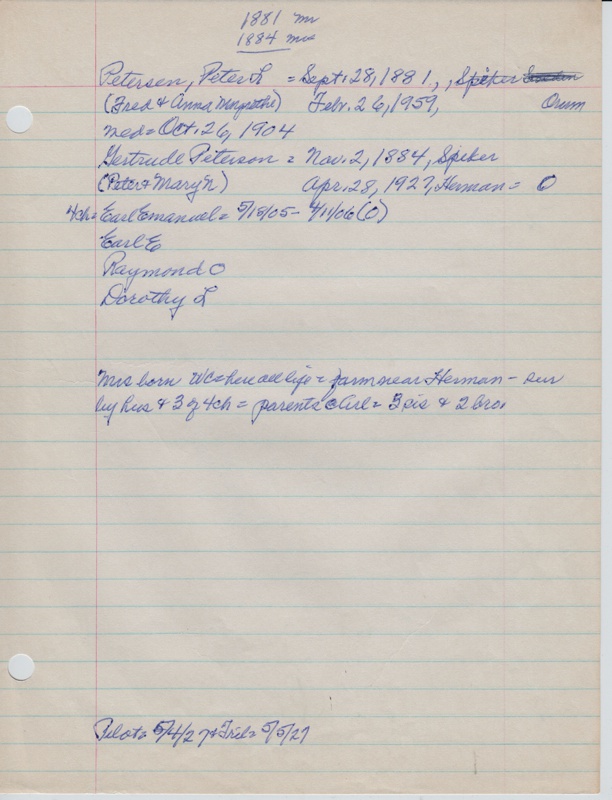 1881 mr
1884 mrs
Petersen, Peter L = Sept. 28, 1881, , Spiker
(Fred & Anna Feb. 26, 1959, Orum
med = Oct. 26, 1904
Gertrude Peterson = Nov. 2, 1884, Spiker
(Peter & Mary N) Apr. 28, 1927, Herman = O
4ch = Earl Emanuel = 5/15/05 - 4/11/06 (O)
Earl E
Raymond O
Dorothy L
Mrs born WC = here all life = farm near Herman - sur
by hus & 3 of 4ch = parents = 3 sis & 2 bro.
Pilot = 5/4/27 + = 5/5/27